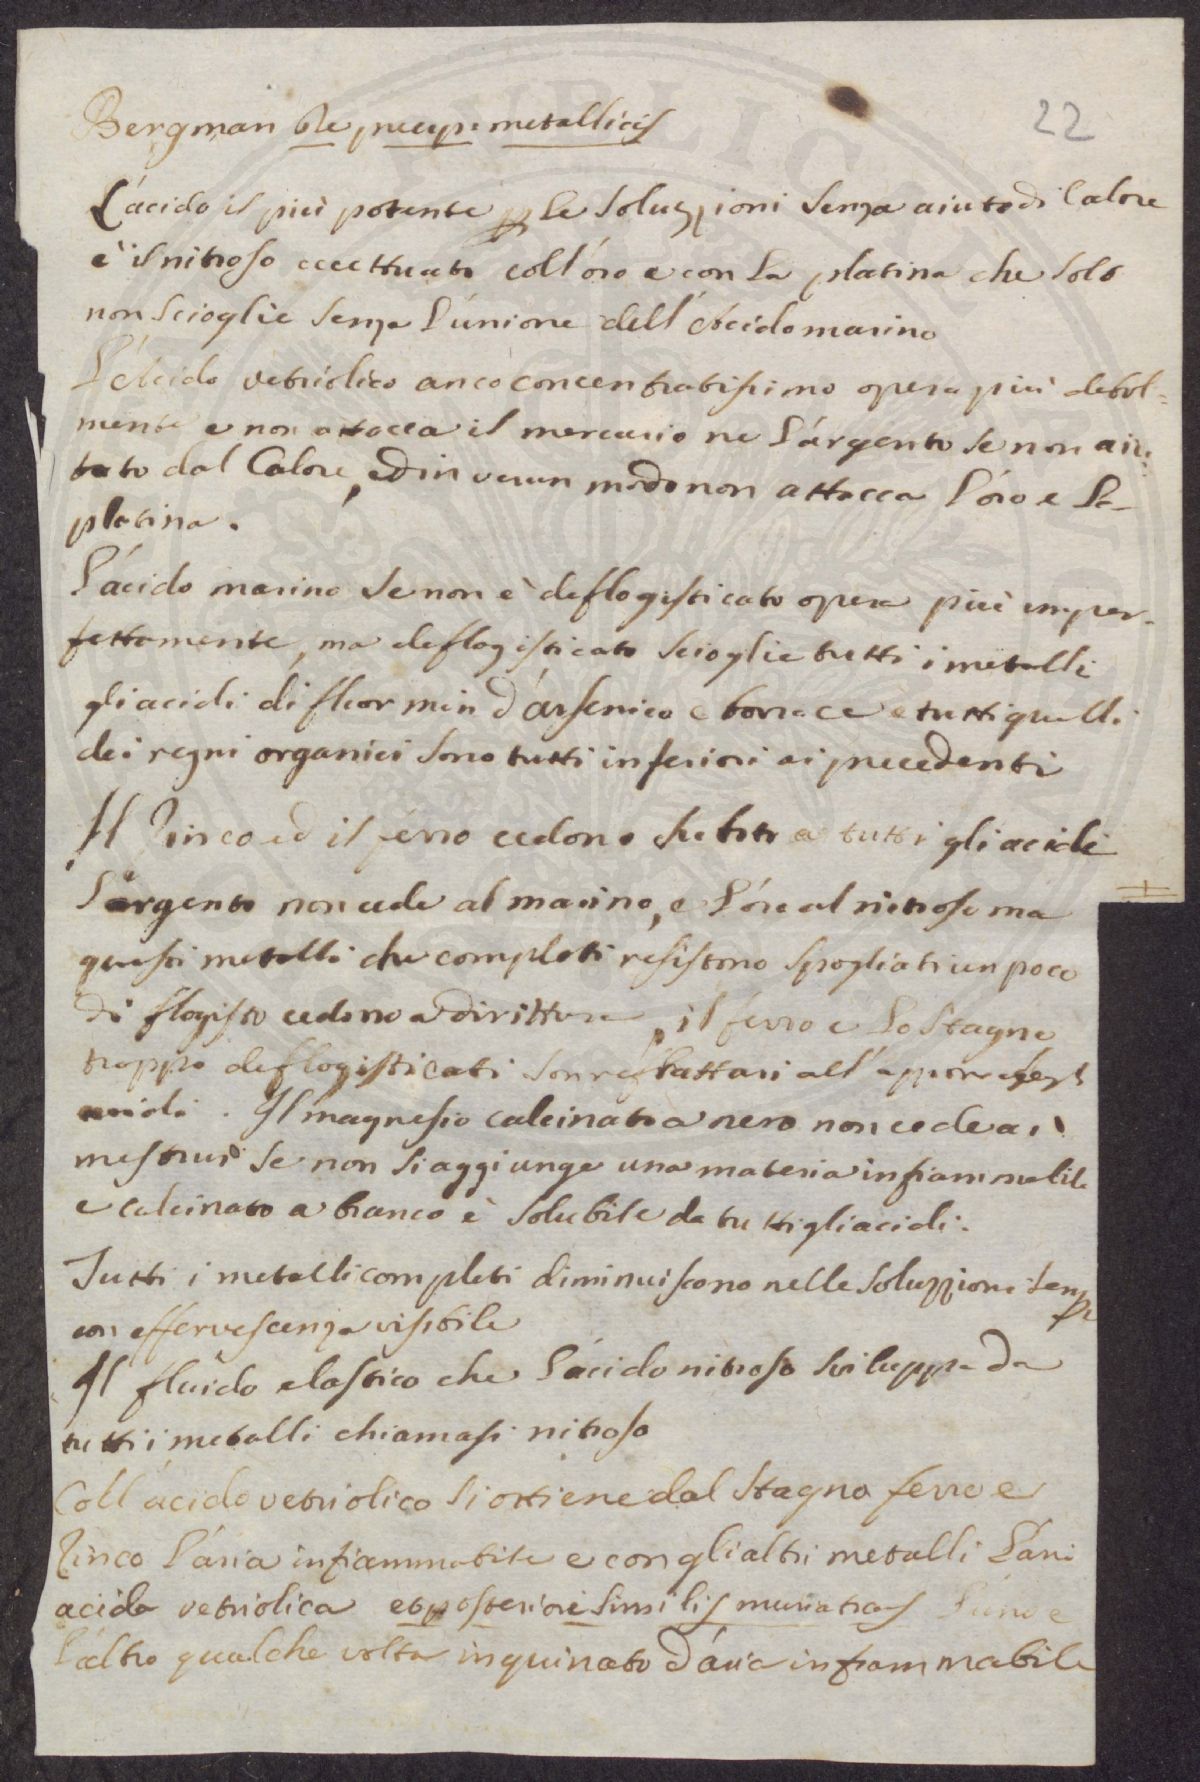 22
Bergman De precip: metallicis
L'ácido il più potente per le soluzzioni senza aiuto di Calore
è il nitroso eccettuato coll'óro e con la platina che solo
non scioglie senza l'únione dell'Ácido marino
L'Ácido vetriolico anco concentratissimo opera più debol=
mente e non attacca il mercurio ne l'árgento se non aiu=
tato dal Calore, ed in verun modo non attacca l'óro e la
platina.
L'ácido marino se non è deflogisticato opera più imper-
fettamente, ma deflogisticato scioglie tutti i metalli
gli acidi di fluor min d'ársenico e borrace e tutti quelli
dei regni organici sono tutti inferiori ai precedenti
Il Zinco ed il ferro cedono subito a tutti gli acidi
L'argento non cede al marino, e l'óro al nitroso ma
questi metalli che completi resistono spogliati un poco
di flogisto cedono adirittura, il ferro e lo stagno
troppo deflogisticati son refrattari all'
acidi. Il magnesio calcinato a nero non cede ai
mestrui se non si aggiunge una materia infiammabile
e calcinato a bianco è solubile da tutti gli acidi.
Tutti i metalli completi diminuiscono nelle soluzzioni
con effervescenza visibile
Il fluido elastico che l'ácido nitroso sviluppa da
tutti i metalli chiamasi nitroso
Coll'ácido vetriolico si ottiene dal stagno ferro e
Zinco l'ária infiammabile e con gli altri metalli l'ári
acida vetriolica et posteriori similis muriatica l'úno e
l'áltro qualche volta inquinato d'ária infiammabile